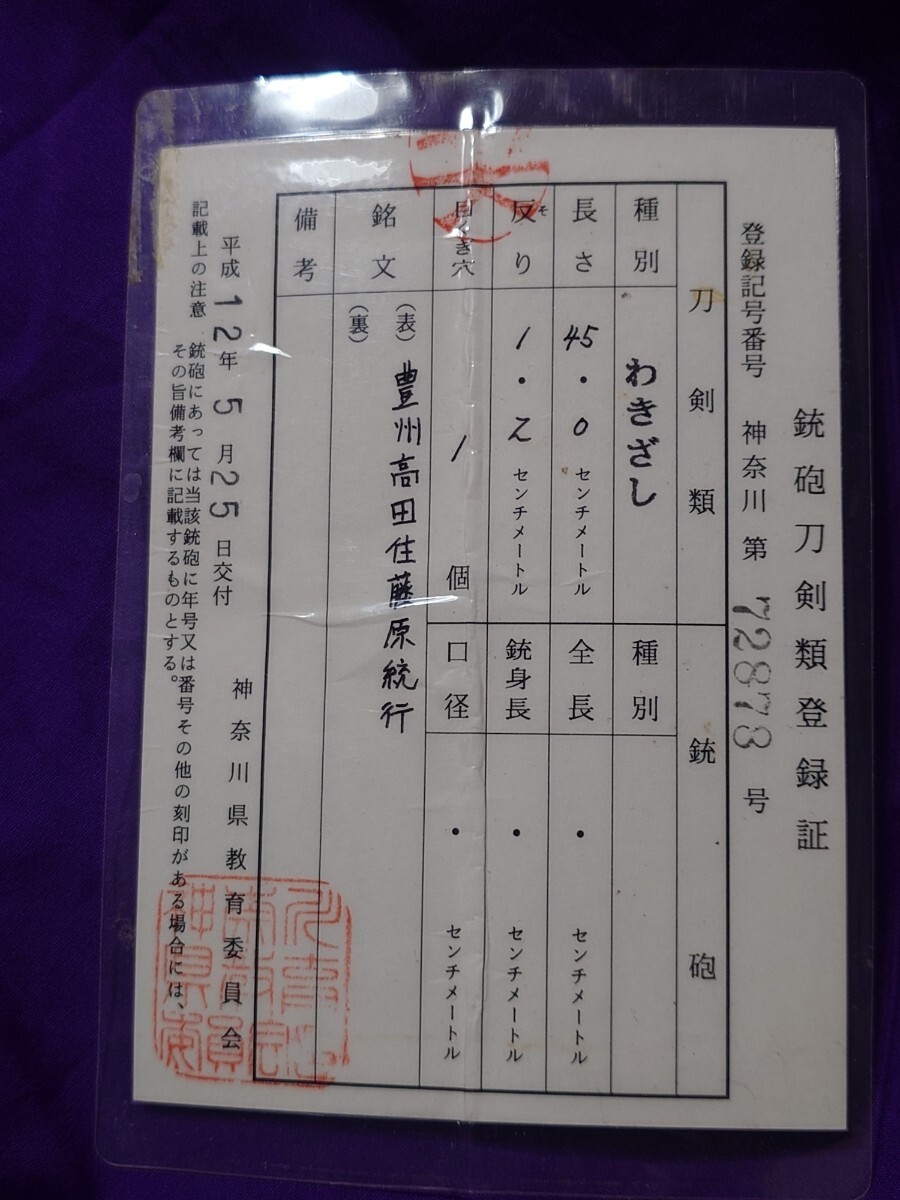 銃砲刀剣類登録証
登録記号番号 神奈川 第 72873 号
刀剣類
銃砲
種別 わきざし
種別
長さ 45・0 センチメートル
全長 ・ センチメートル
反り そ 1・2 センチメートル
銃身長 ・ センチメートル
目くぎ穴 1 個
口径 ・ センチメートル
銘文 (表) 豊州高田住藤原統行
(裏)
備考
平成12年5月25日交付 神奈川県教育委員会
記載上の注意 銃砲にあっては当該銃砲に年号又は番号その他の刻印がある場合には、
その旨備考欄に記載するものとする。